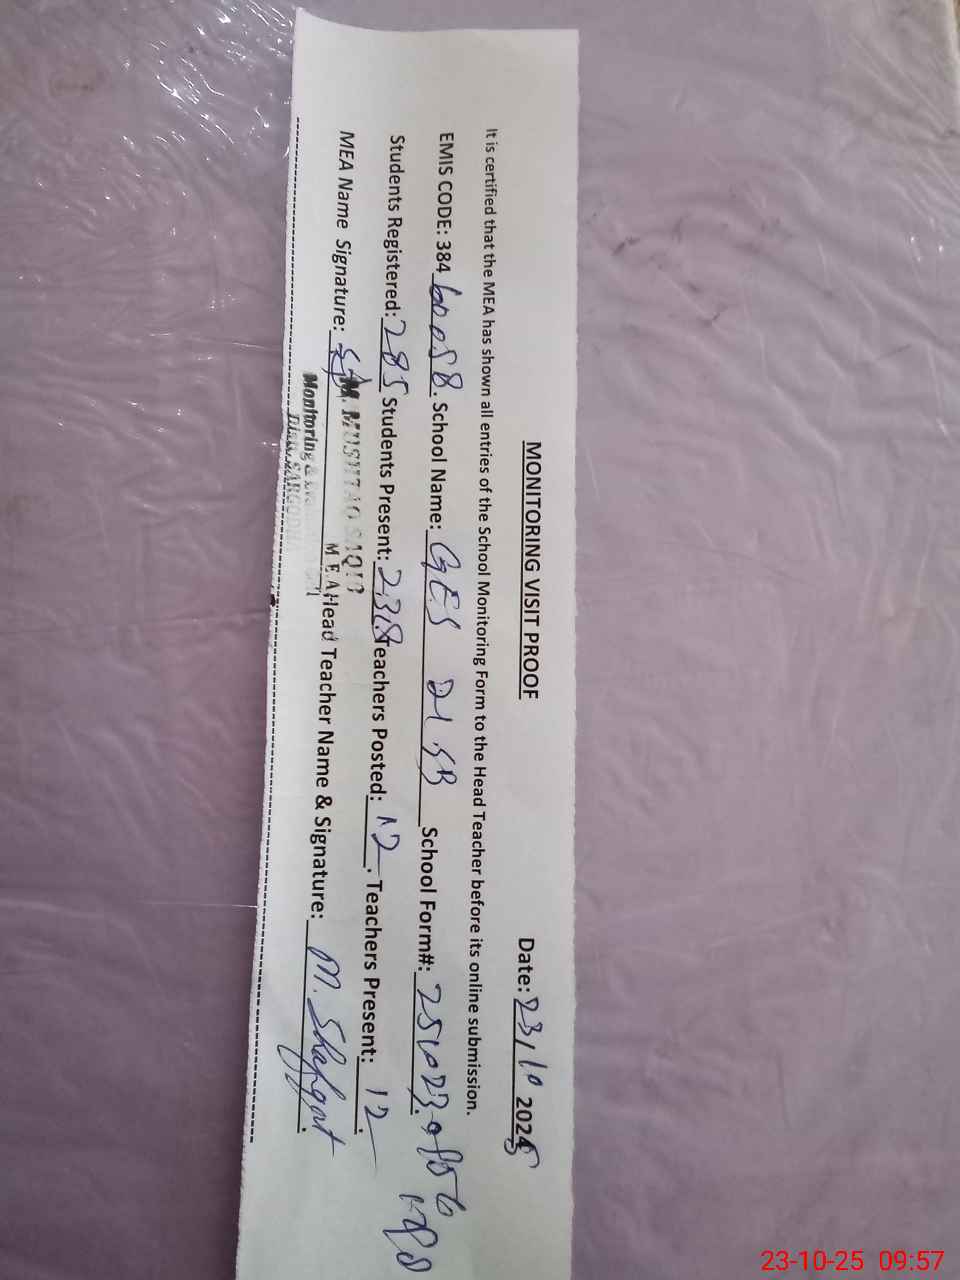 MONITORING VISIT PROOF Date: 23/10 2025
It is certified that the MEA has shown all entries of the School Monitoring Form to the Head Teacher before its online submission.
EMIS CODE: 384 60058. School Name: GES 21 SB School Form#: 251023.
Students Registered: 285 Students Present: 238 Teachers Posted: 12. Teachers Present: 12.
MEA Name Signature: Head Teacher Name & Signature: M. Shafqat.
M. MUSHTAQ SAQIB
M.E.A
Monitoring &
Distt. SARGODHA
23-10-25 09:57